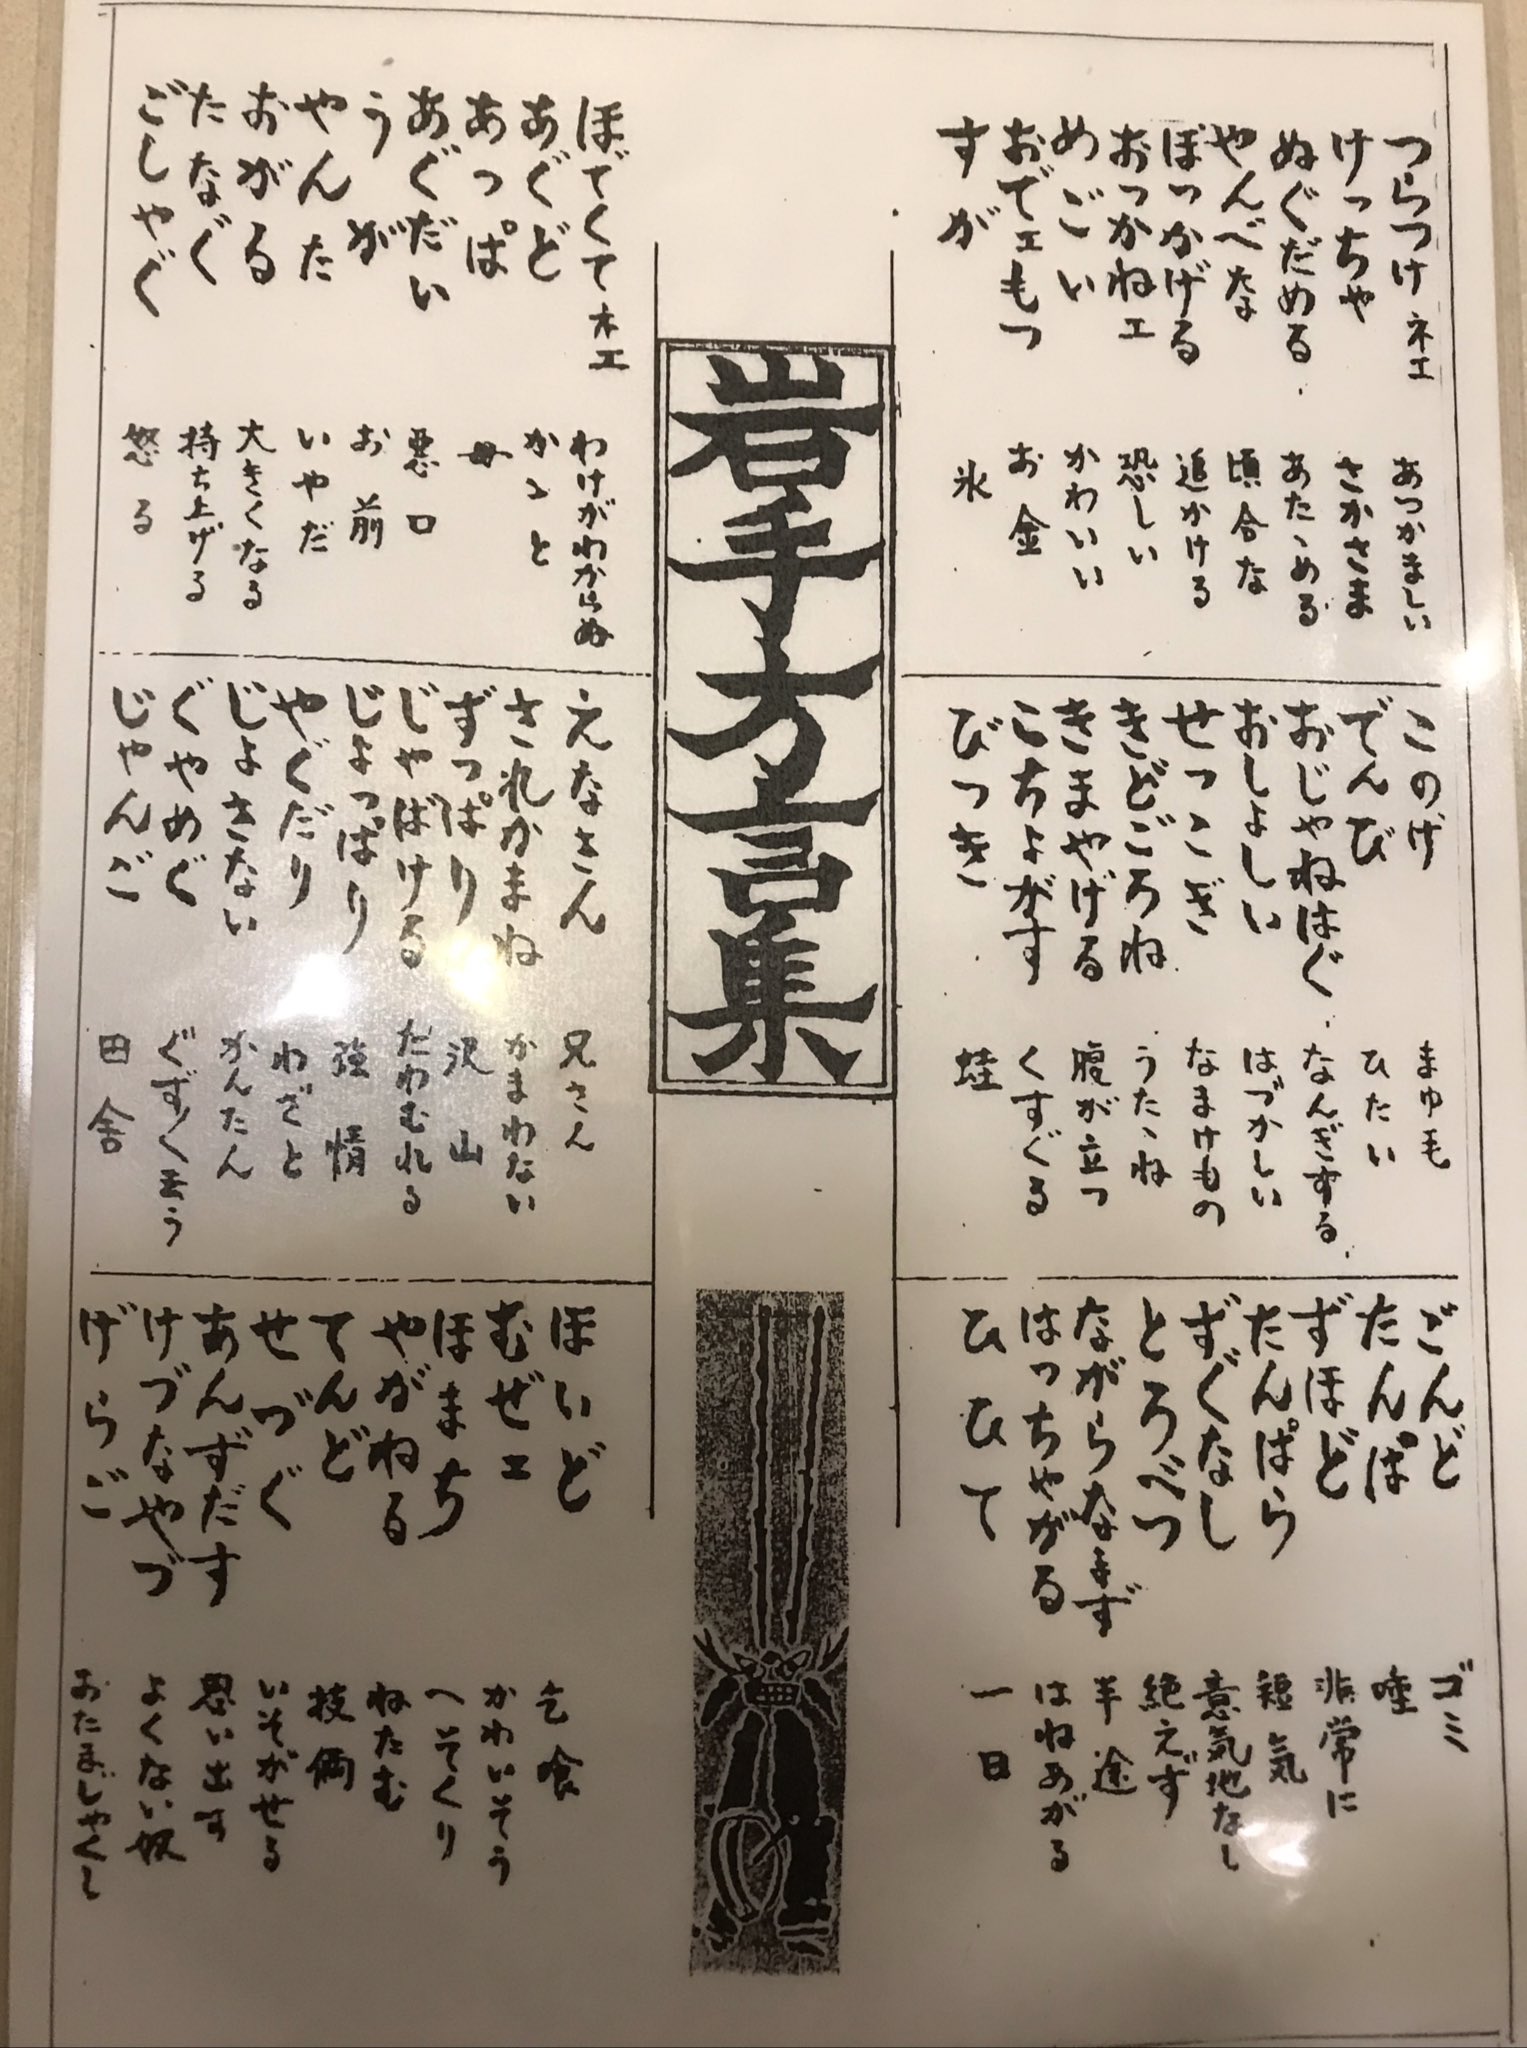 岩手方言集
つらつけネエ
けっちゃ
ぬぐだめる
やんべな
ぼっかげる
おっかねエ
めごい
おでエもつ
すが
あつかましい
さかさま
あたゝめる
頃合な
追かける
恐しい
かわいい
お金
氷
このげ
でんび
おじゃねはぐ
おしょしい
せっこぎ
きどごろね
きまやげる
こちょがす
びっき
まゆ毛
ひたい
なんぎする
はづかしい
なまけもの
うたゝね
腹が立つ
くすぐる
蛙
ごんど
たんぽ
ずほど
たんぱら
ずぐなし
とろべつ
ながらなまず
はっちゃがる
ひひて
ゴミ
唖
非常に
短気
意気地なし
絶えず
半途
はねあがる
一日
ほでくてホエ
あぐど
あっぱ
あぐだい
うが
やんた
おがる
たなぐ
ごしゃぐ
わけがわからぬ
かゝと
母
悪口
お前
いやだ
大きくなる
持ち上げる
怒る
えなさん
されかまね
ずっぱり
じゃばける
じょっぱり
やぐだり
じょさない
ぐやめぐ
じゃんご
兄さん
かまわない
沢山
たわむれる
強情
わざと
かんたん
ぐず〱云う
田舎
ほいど
むぜエ
ほまち
やがねる
てんど
せづぐ
あんずだす
けづなやづ
げらご
乞喰
かわいそう
へそくり
ねたむ
技倆
いそがせる
思い出す
よくない奴
おたまじゃくし